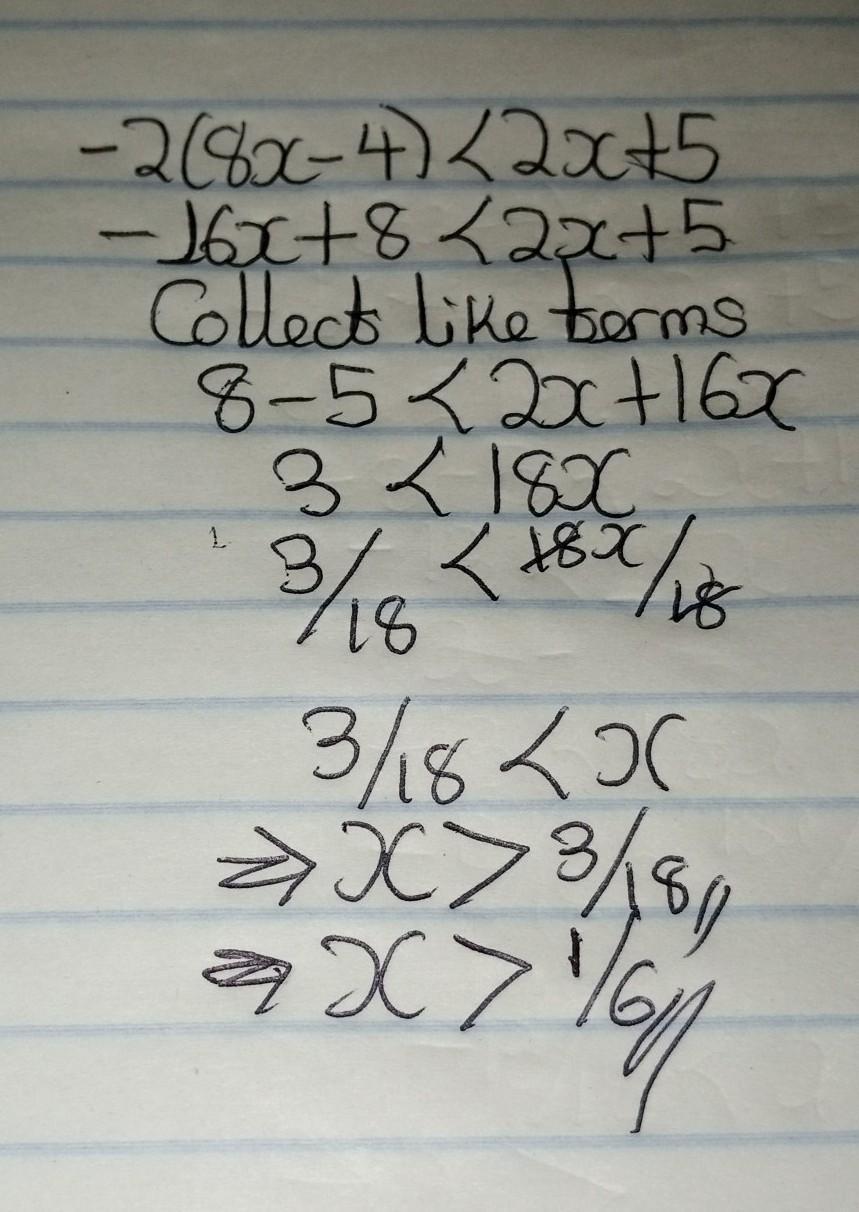 -2(8x-4)<2x+5
-16x+8<2x+5
Collect like terms
8-5<2x+16x
3<18x
3/18<18x/18
3/18<x
⇒x>3/18,,
⇒x>1/6,,